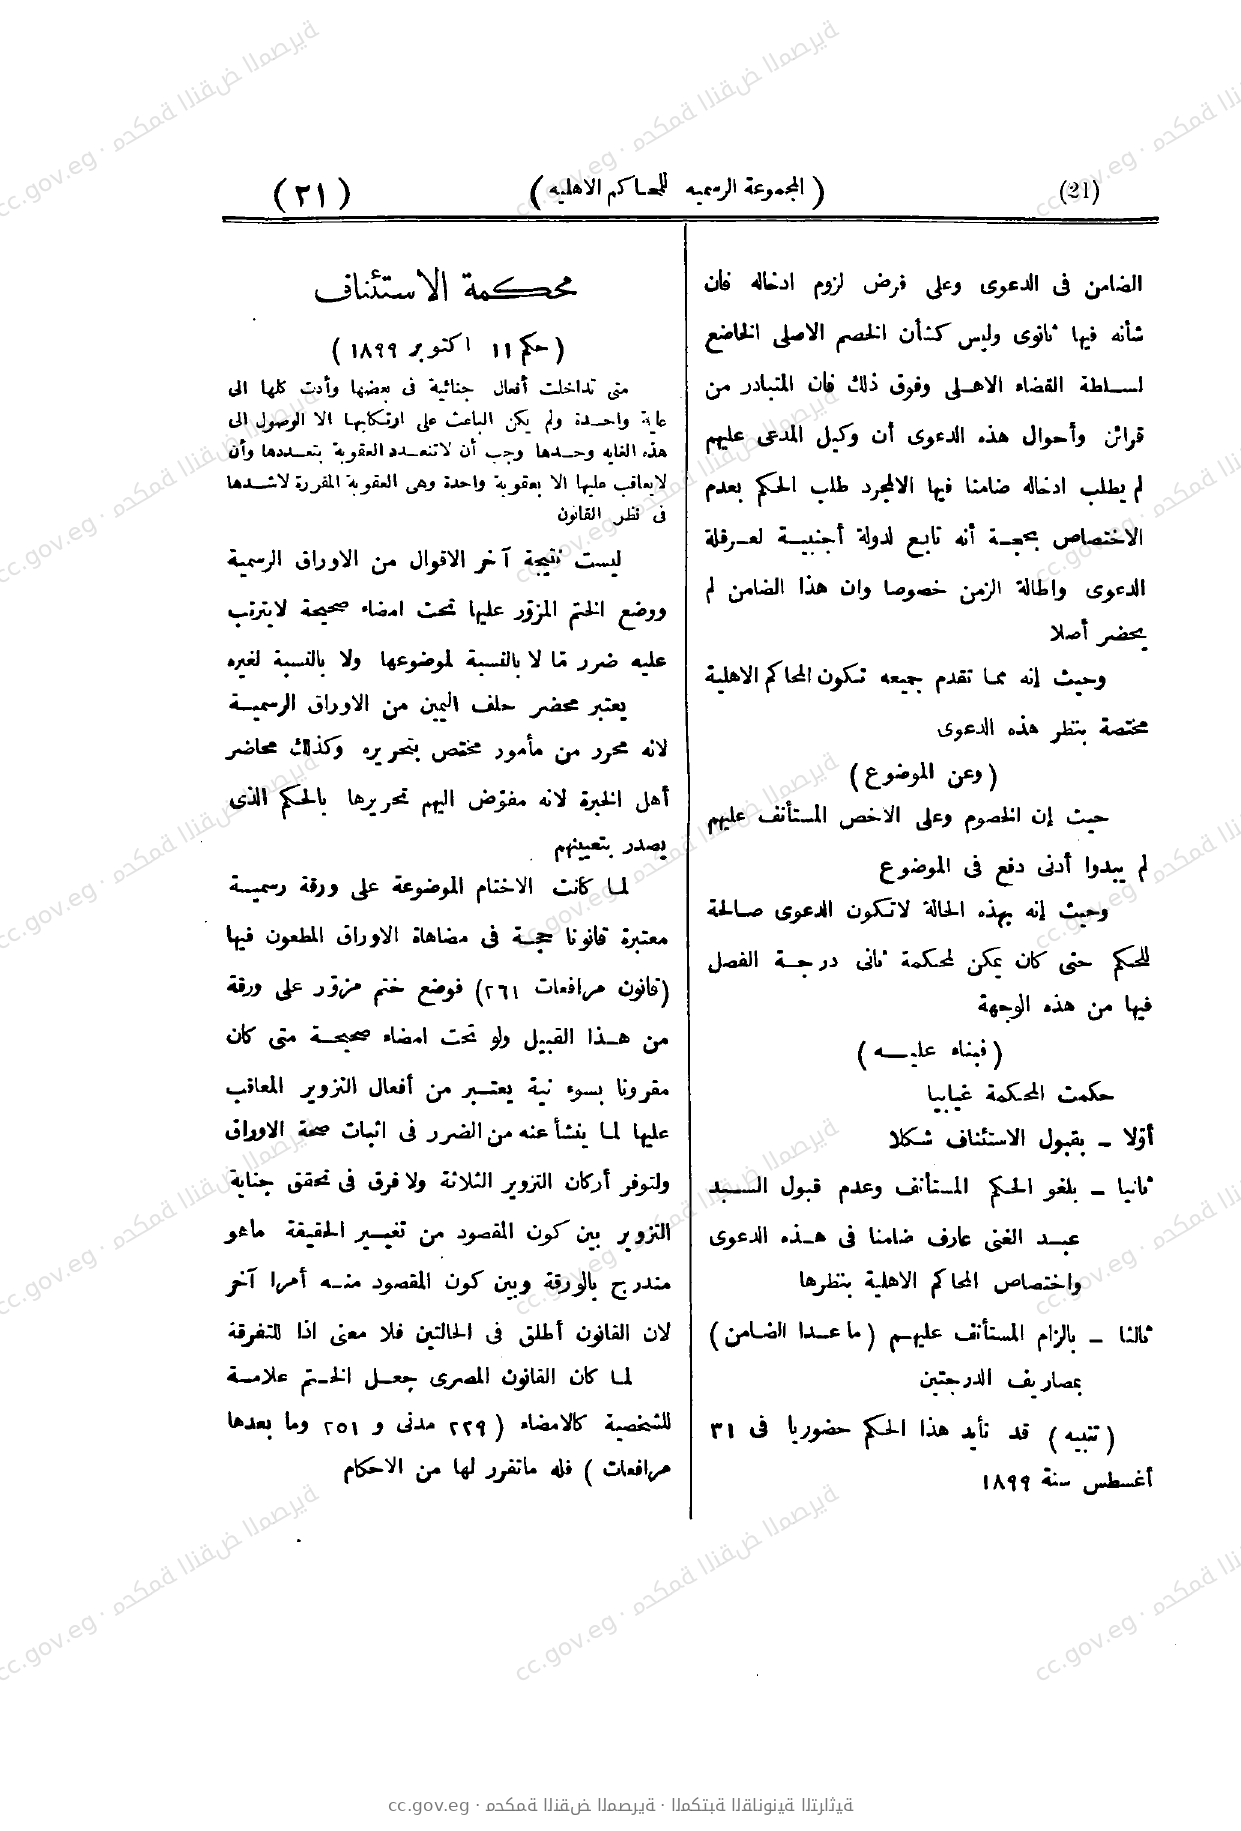 (21) ( المجموعة الرسميه للمحاكم الاهليه ) ( ٢١ )
الضامن فى الدعوى وعلى فرض لزوم ادخاله فان
شأنه فيها ثانوى وليس كشأن الخصم الاصلى الخاضع
لسلطة القضاء الاهلى وفوق ذلك فان المتبادر من
قرائن وأحوال هذه الدعوى أن وكيل المدعى عليهم
لم يطلب ادخاله ضامنا فيها الا لمجرد طلب الحكم بعدم
الاختصاص بحجة أنه تابع لدولة أجنبية لعرقلة
الدعوى واطالة الزمن خصوصا وان هذا الضامن لم
يحضر أصلا
وحيث إنه مما تقدم جميعه تكون المحاكم الاهلية
مختصة بنظر هذه الدعوى
( وعن الموضوع )
حيث إن الخصوم وعلى الاخص المستأنف عليهم
لم يبدوا أدنى دفع فى الموضوع
وحيث إنه بهذه الحالة لا تكون الدعوى صالحة
للحكم حتى كان يمكن لمحكمة ثانى درجة الفصل
فيها من هذه الوجهة
( فبناء عليه )
حكمت المحكمة غيابيا
أوّلا ــ بقبول الاستئناف شكلا
ثانيا ــ بلغو الحكم المستأنف وعدم قبول السيد
عبد الغنى عارف ضامنا فى هذه الدعوى
واختصاص المحاكم الاهلية بنظرها
ثالثا ــ بالزام المستأنف عليهم ( ما عدا الضامن )
بمصاريف الدرجتين
( تنبيه ) قد تأيد هذا الحكم حضوريا فى ٣١
أغسطس سنة ١٨٩٩
محكمة الاستئناف
( حكم ١١ اكتوبر ١٨٩٩ )
متى تداخلت أفعال جنائية فى بعضها وأدت كلها الى
غاية واحدة ولم يكن الباعث على ارتكابها الا الوصول الى
هذه الغايه وحدها وجب أن لا تتعدد العقوبة بتعددها وأن
لا يعاقب عليها الا بعقوبة واحدة وهى العقوبة المقررة لاشدها
فى نظر القانون
ليست نتيجة آخر الاقوال من الاوراق الرسمية
ووضع الختم المزوّر عليها تحت امضاء صحيحة لا يترتب
عليه ضرر مّا لا بالنسبة لموضوعها ولا بالنسبة لغيره
يعتبر محضر حلف اليمين من الاوراق الرسمية
لانه محرر من مأمور مختص بتحريره وكذلك محاضر
أهل الخبرة لانه مفوّض اليهم تحريرها بالحكم الذى
يصدر بتعيينهم
لما كانت الاختام الموضوعة على ورقة رسمية
معتبرة قانونا حجة فى مضاهاة الاوراق المطعون فيها
(قانون مرافعات ٢٦١) فوضع ختم مزوّر على ورقة
من هذا القبيل ولو تحت امضاء صحيحة متى كان
مقرونا بسوء نية يعتبر من أفعال التزوير المعاقب
عليها لما ينشأ عنه من الضرر فى اثبات صحة الاوراق
ولتوفر أركان التزوير الثلاثة ولا فرق فى تحقق جناية
التزوير بين كون المقصود من تغيير الحقيقة ما هو
مندرج بالورقة وبين كون المقصود منه أمرا آخر
لان القانون أطلق فى الحالتين فلا معنى اذا للتفرقة
لما كان القانون المصرى جعل الختم علامة
للشخصية كالامضاء ( ٢٢٩ مدنى و ٢٥١ وما بعدها
مرافعات ) فله ما تقرر لها من الاحكام
cc.gov.eg · محكمة النقض المصرية · المكتبة القانونية التراثية